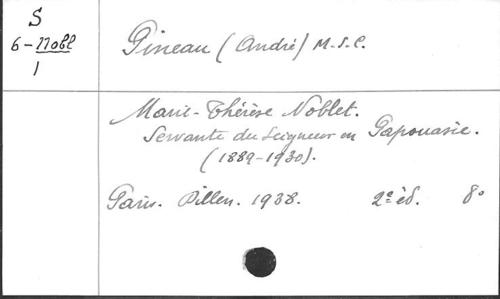 S
6-Nobl
1
Pineau (André) M.S.C.
Marie-Thérèse Noblet.
Servante du Seigneur en Papouasie.
(1889-1930).
Paris. Dillen. 1938. 2e éd. 8°